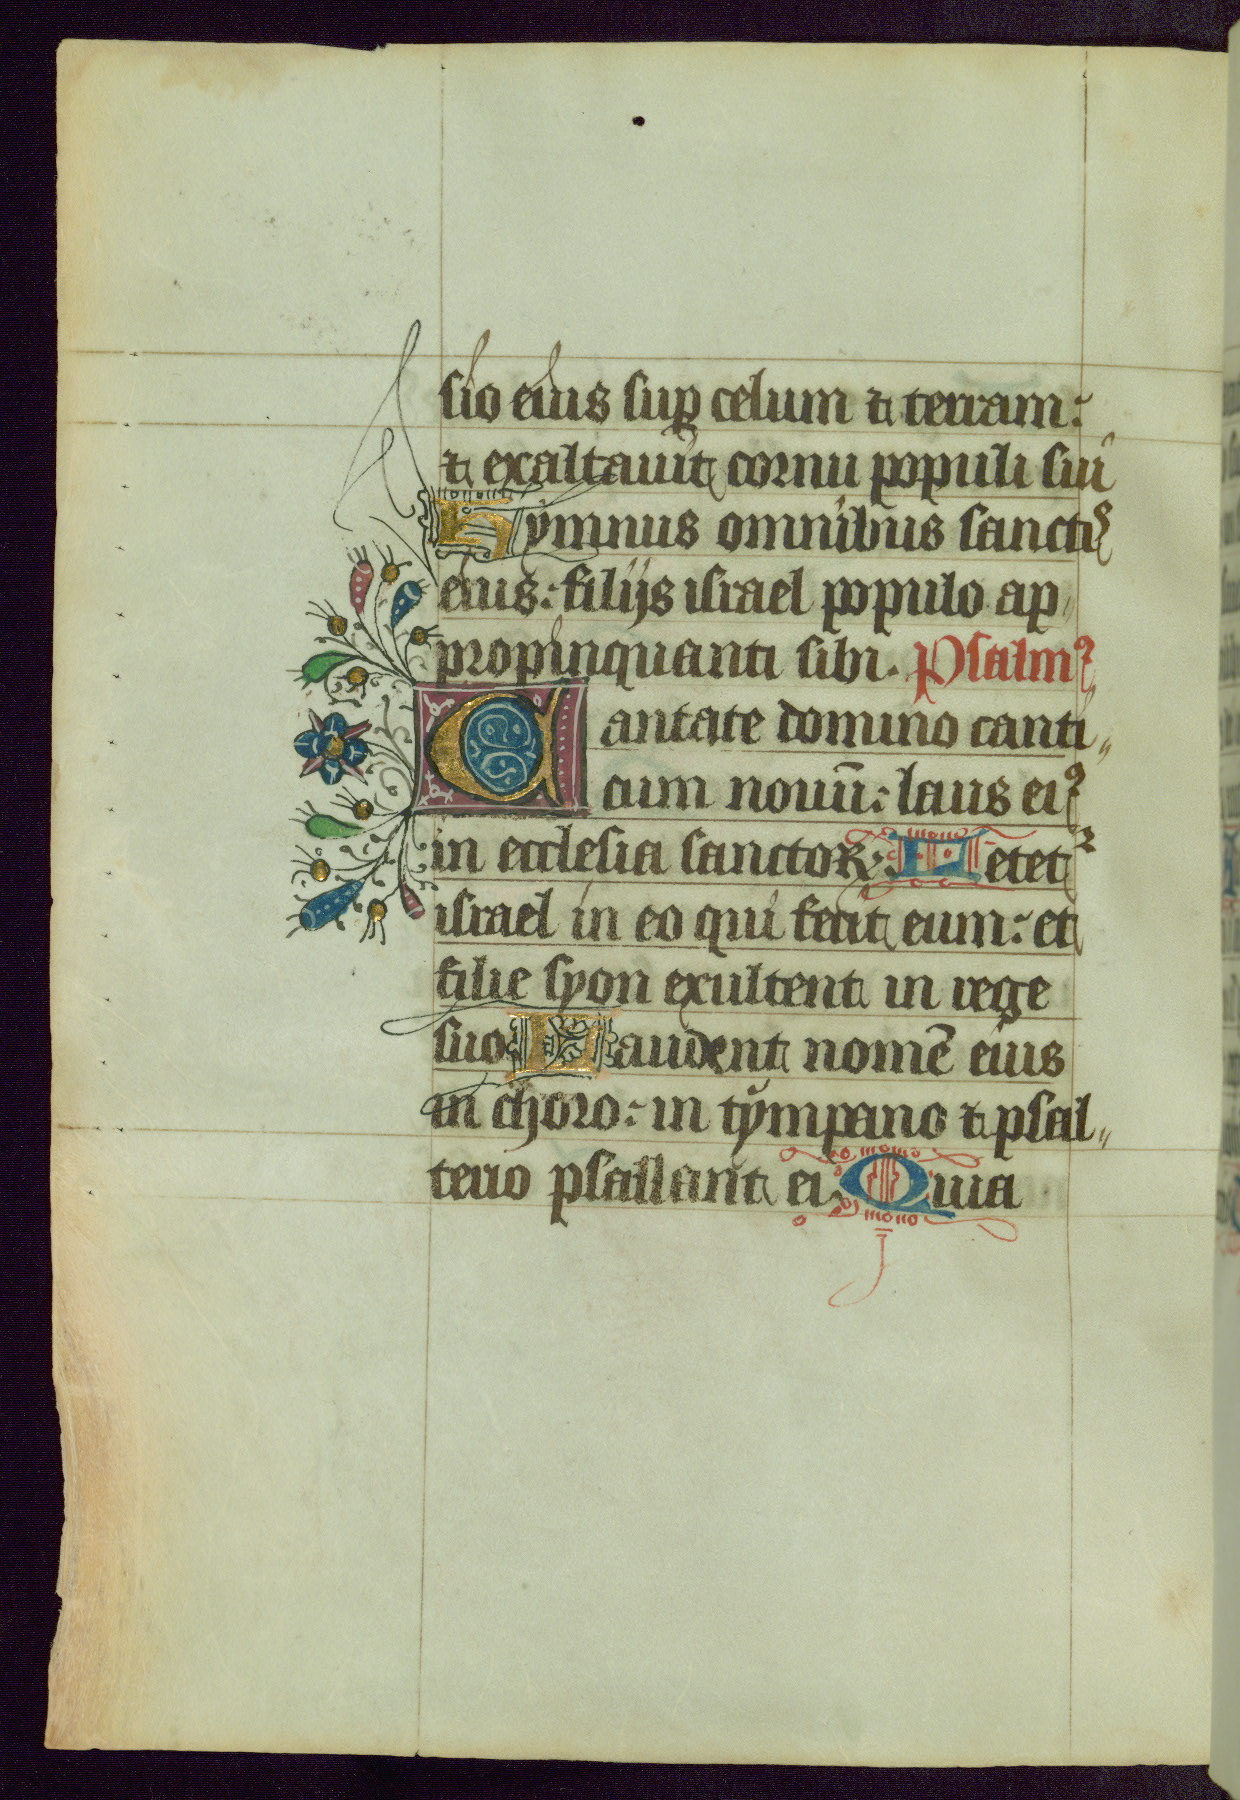 sio eius sup celum ⁊ terram:
⁊ exaltauit cornu populi sui
Hymnus omnibus sanctis
eius: filijs israel populo ap
propinquanti sibi. Psalmꝰ
Cantate domino canti
cum nouū: laus eiꝰ
in ecclesia sanctoꝝ: Letetᷣ
israel in eo qui fecit eum: et
filie syon exultent in rege
suo Laudent nomē eius
in choro: in tympano ⁊ psal
terio psallant ei Quia